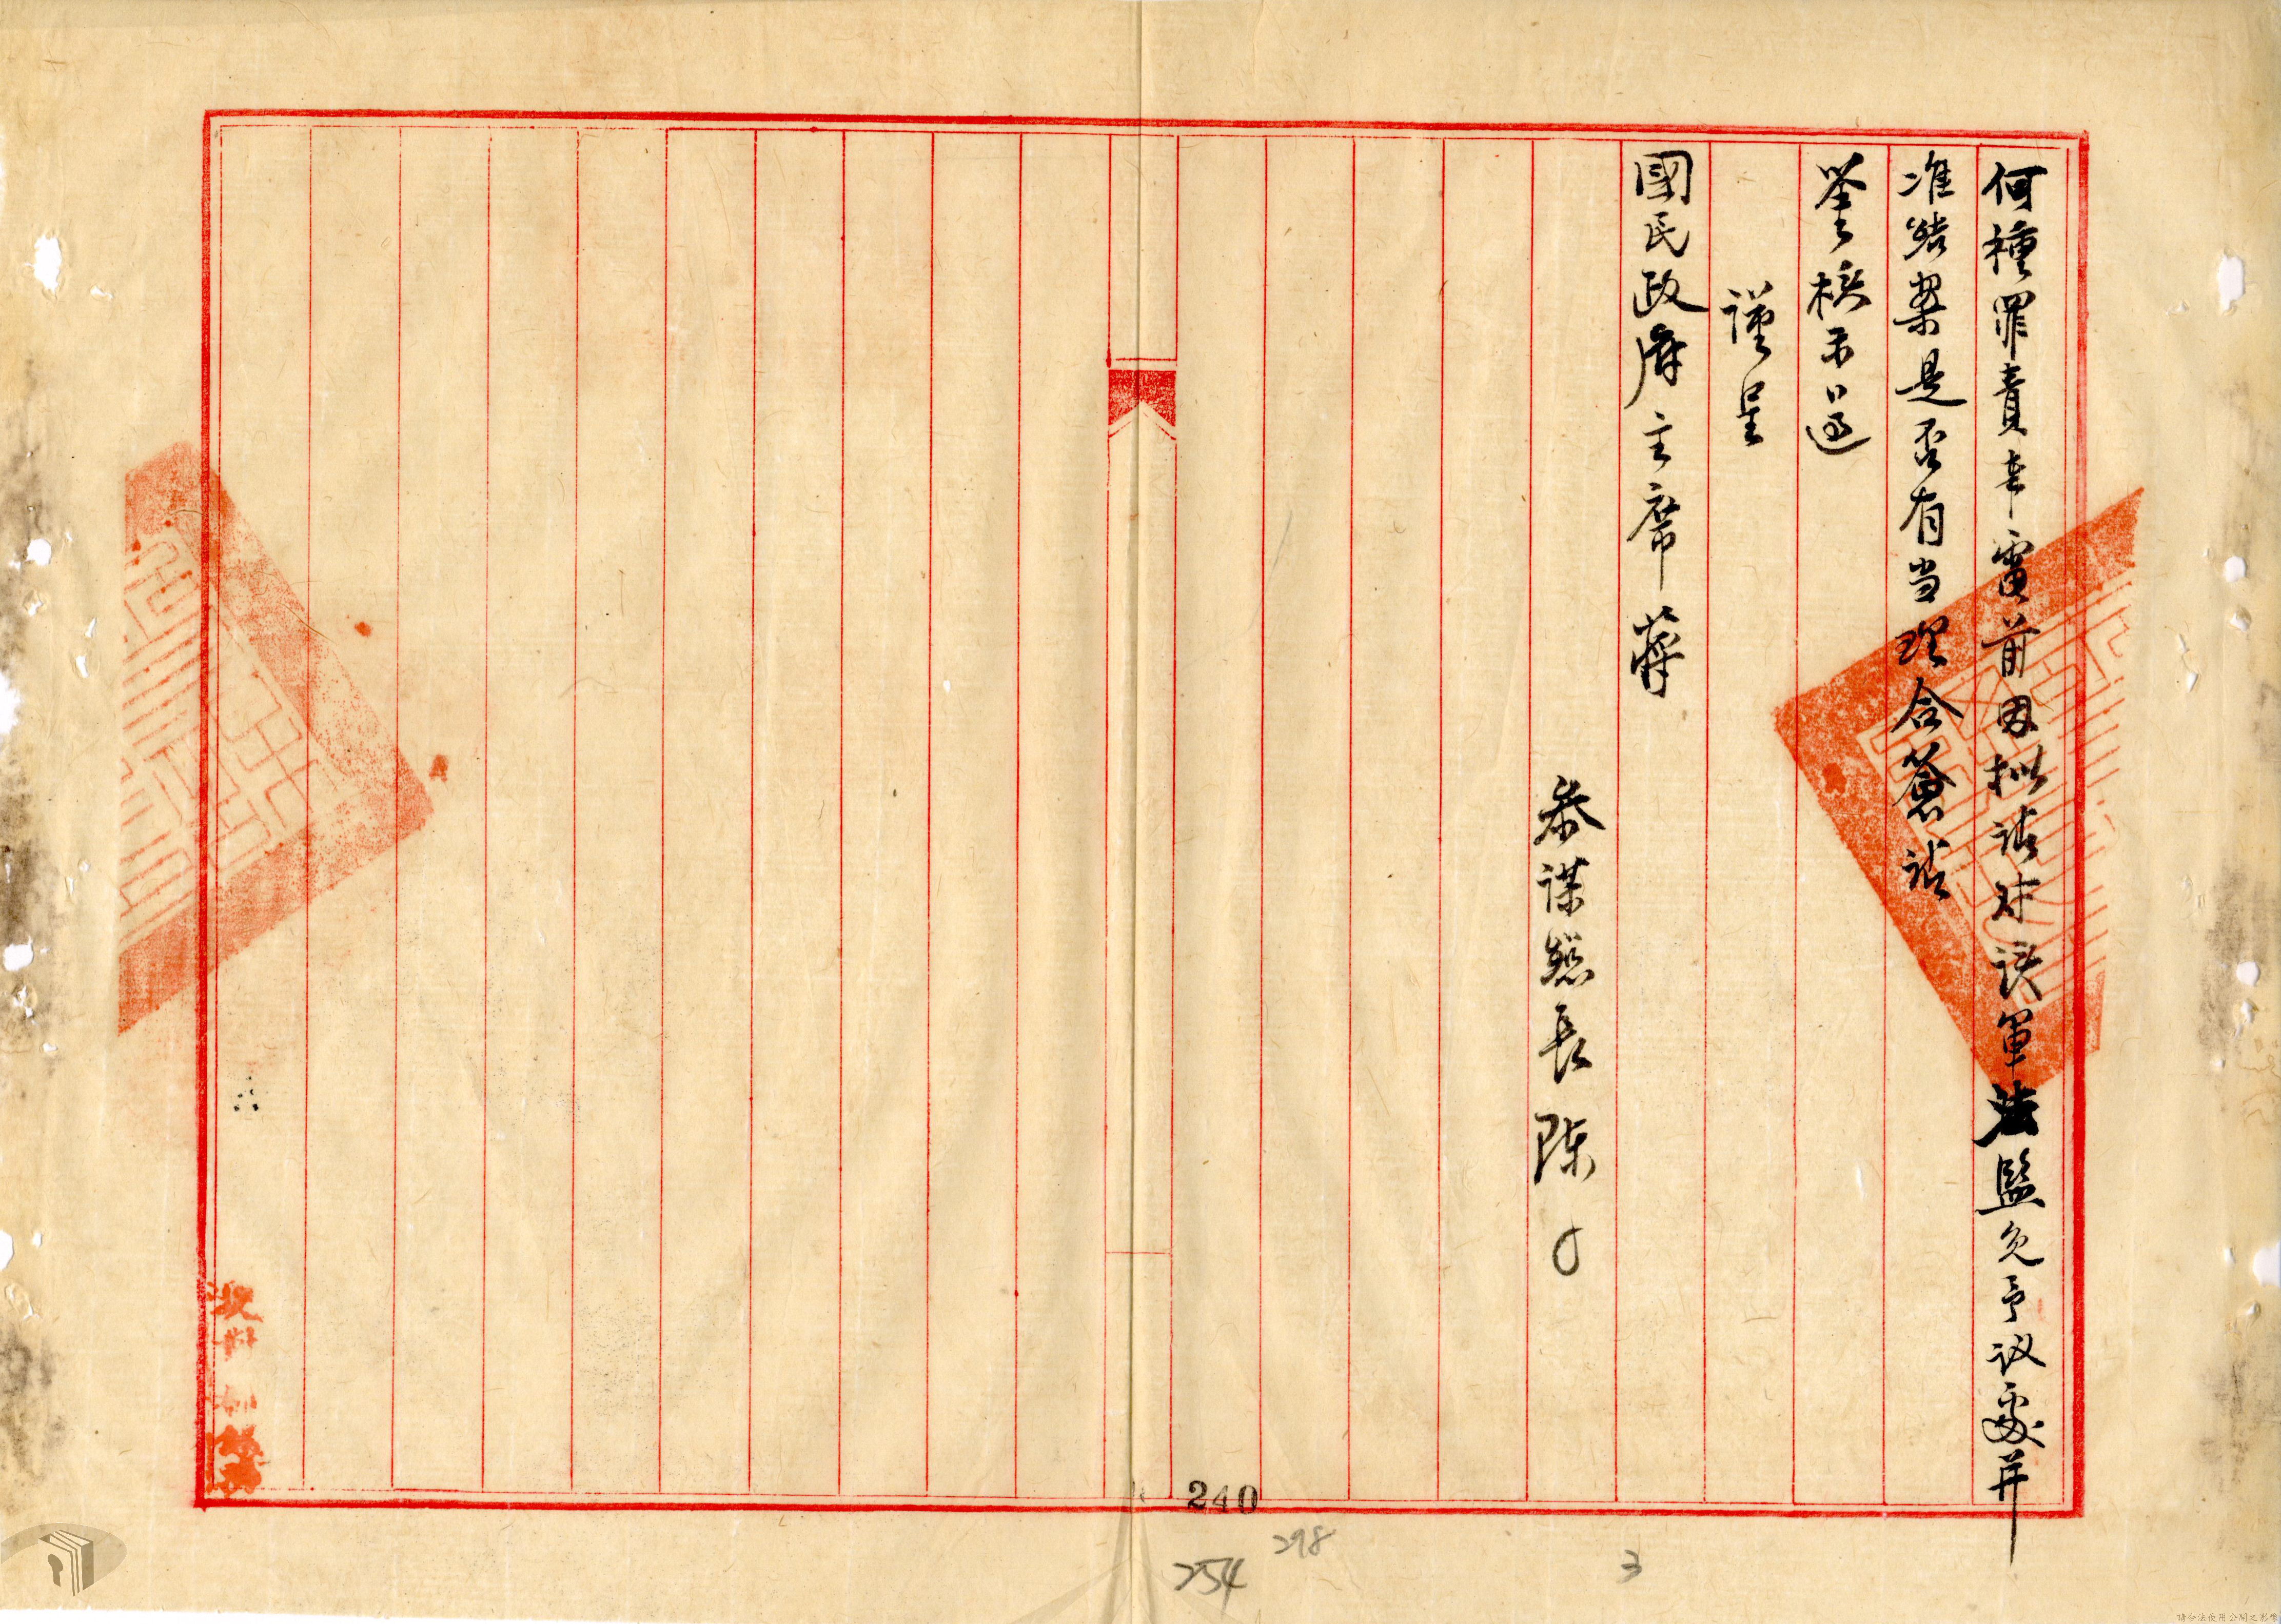 何種罪責奉電前因拟請对该軍法監免予议處并
准結案是否有当理合簽請
鑒核示遵
謹呈
國民政府主席蔣
参謀總長陈
240
298
254
3
請合法使用公開之影像